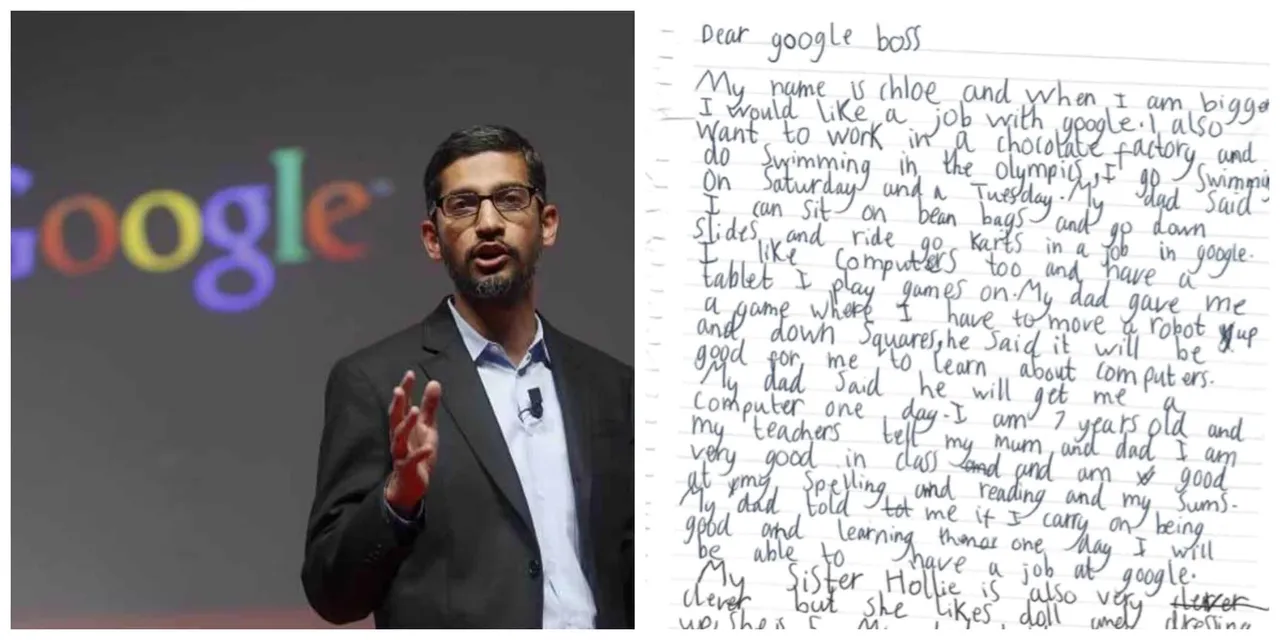 Google
Dear google boss
My name is chloe and when I am bigge
I would like a job with google. I also
want to work in a chocolate factory and
do swimming in the olympics, I go swimmi
on Saturday and a Tuesday. My dad said
I can sit on bean bags and go down
slides and ride go karts in a job in google.
I like computers too and have a
tablet I play games on. My dad gave me
a game where I have to move a robot up
and down squares, he said it will be
good for me to learn about computers.
My dad said he will get me a
computer one day. I am 7 years old and
my teachers tell my mum and dad I am
very good in class and and am good
at my spelling and reading and my sums.
My dad told tot me if I carry on being
good and learning one day I will
be able to have a job at google.
My sister Hollie is also very clever
clever but she likes doll and dressing
up, she is 5. My